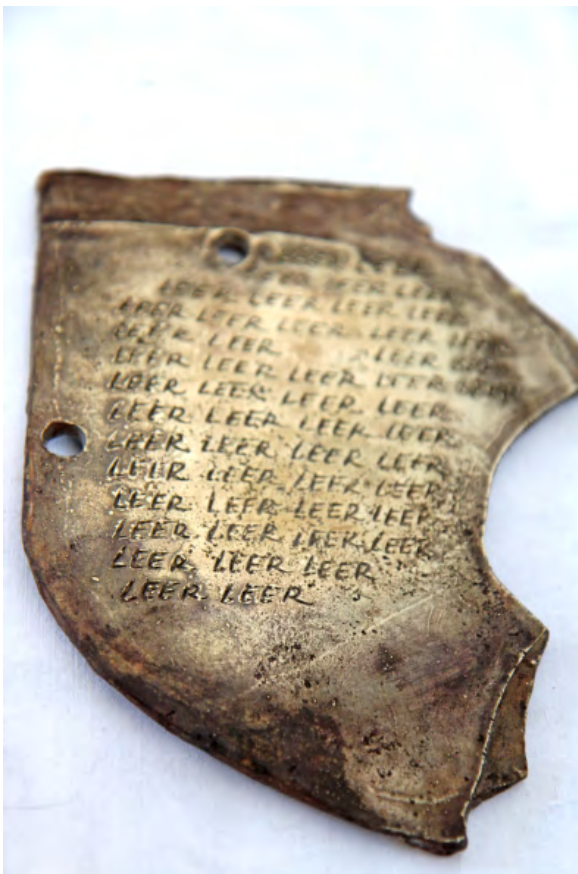 LEER LEER
LEER LEER LEER LEER
LEER LEER LEER LEER LEER
LEER LEER LEER
LEER LEER LEER LEER LEER
LEER LEER LEER LEER
LEER LEER LEER LEER
LEER LEER LEER LEER
LEER LEER LEER LEER
LEER LEER LEER LEER
LEER LEER LEER LEER
LEER LEER LEER
LEER LEER